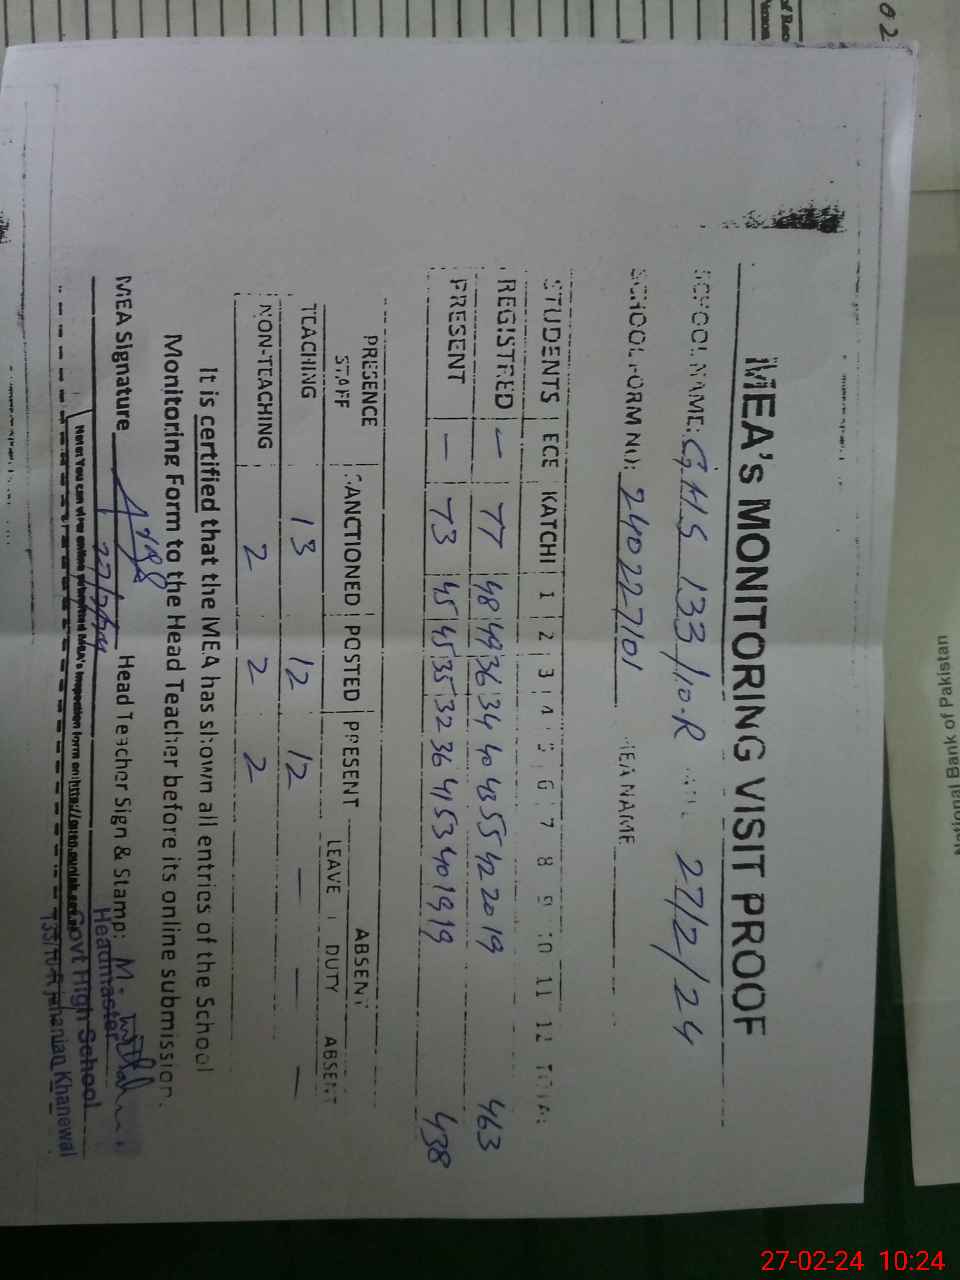 MEA's MONITORING VISIT PROOF
SCHOOL NAME: GHS 133/10-R 27/2/24
SCHOOL FORM NO: 240227101 MEA NAME
STUDENTS ECE KATCHI 1 2 3 4 5 6 7 8 9 10 11 12 TOTAL
REGISTRED — 77 48 49 36 34 40 43 55 42 20 19 463
PRESENT — 73 45 45 35 32 36 41 53 40 19 19 438
PRESENCE ABSENT
STAFF SANCTIONED POSTED PRESENT LEAVE DUTY ABSENT
TEACHING 13 12 12 — — —
NON-TEACHING 2 2 2
It is certified that the MEA has shown all entries of the School
Monitoring Form to the Head Teacher before its online submission.
MEA Signature Head Teacher Sign & Stamp:
27/2/24
Headmaster
Note: You can view online submitted MEA's Inspection form on
Govt High School
133/10-R Jahanian Khanewal
National Bank of Pakistan
02
27-02-24 10:24